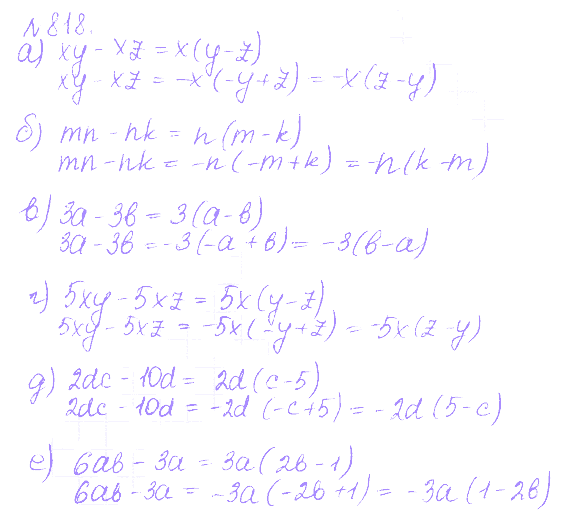 №818.
а) xy - xz = x(y-z)
xy - xz = -x(-y+z) = -x(z-y)
б) mn - nk = n(m-k)
mn - nk = -n(-m+k) = -n(k-m)
в) 3a - 3b = 3(a-b)
3a - 3b = -3(-a+b) = -3(b-a)
г) 5xy - 5xz = 5x(y-z)
5xy - 5xz = -5x(-y+z) = -5x(z-y)
д) 2dc - 10d = 2d(c-5)
2dc - 10d = -2d(-c+5) = -2d(5-c)
е) 6ab - 3a = 3a(2b-1)
6ab - 3a = -3a(-2b+1) = -3a(1-2b)